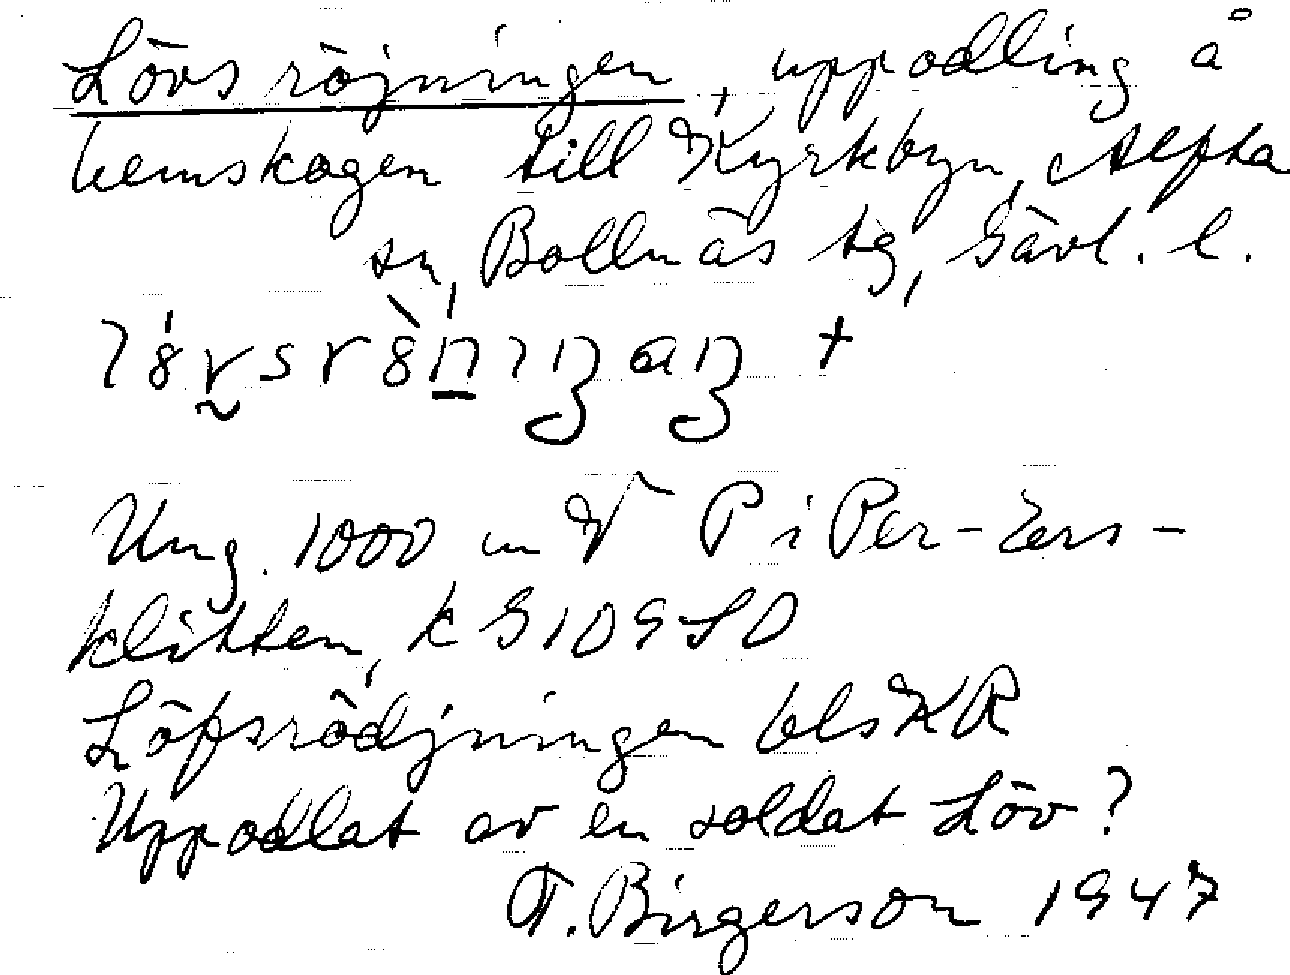 Lövsröjningen, uppodling å
hemskogen till Kyrkbyn, Alfta
sn, Bollnäs tg, Gävl. l.
Ung. 1000 m V P i Per-Ers-
klitten, k G109SO
Löfsrödjningen bls KR
Uppodlat av en soldat Löv?
T. Birgerson 1947